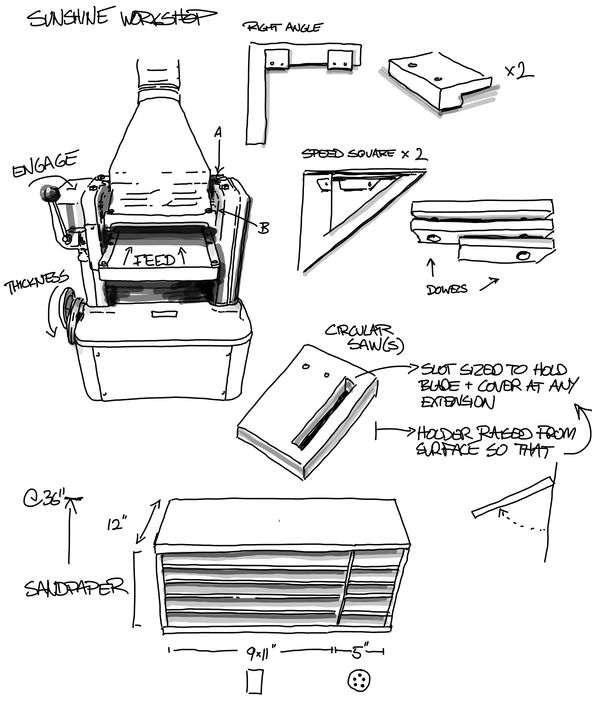 SUNSHINE WORKSHOP
RIGHT ANGLE
×2
A
ENGAGE
SPEED SQUARE × 2
B
FEED
THICKNESS
DOWELS
CIRCULAR
SAW(S)
SLOT SIZED TO HOLD
BLADE + COVER AT ANY
EXTENSION
HOLDER RAISED FROM
SURFACE SO THAT
@36"
12"
SANDPAPER
9×11"
5"